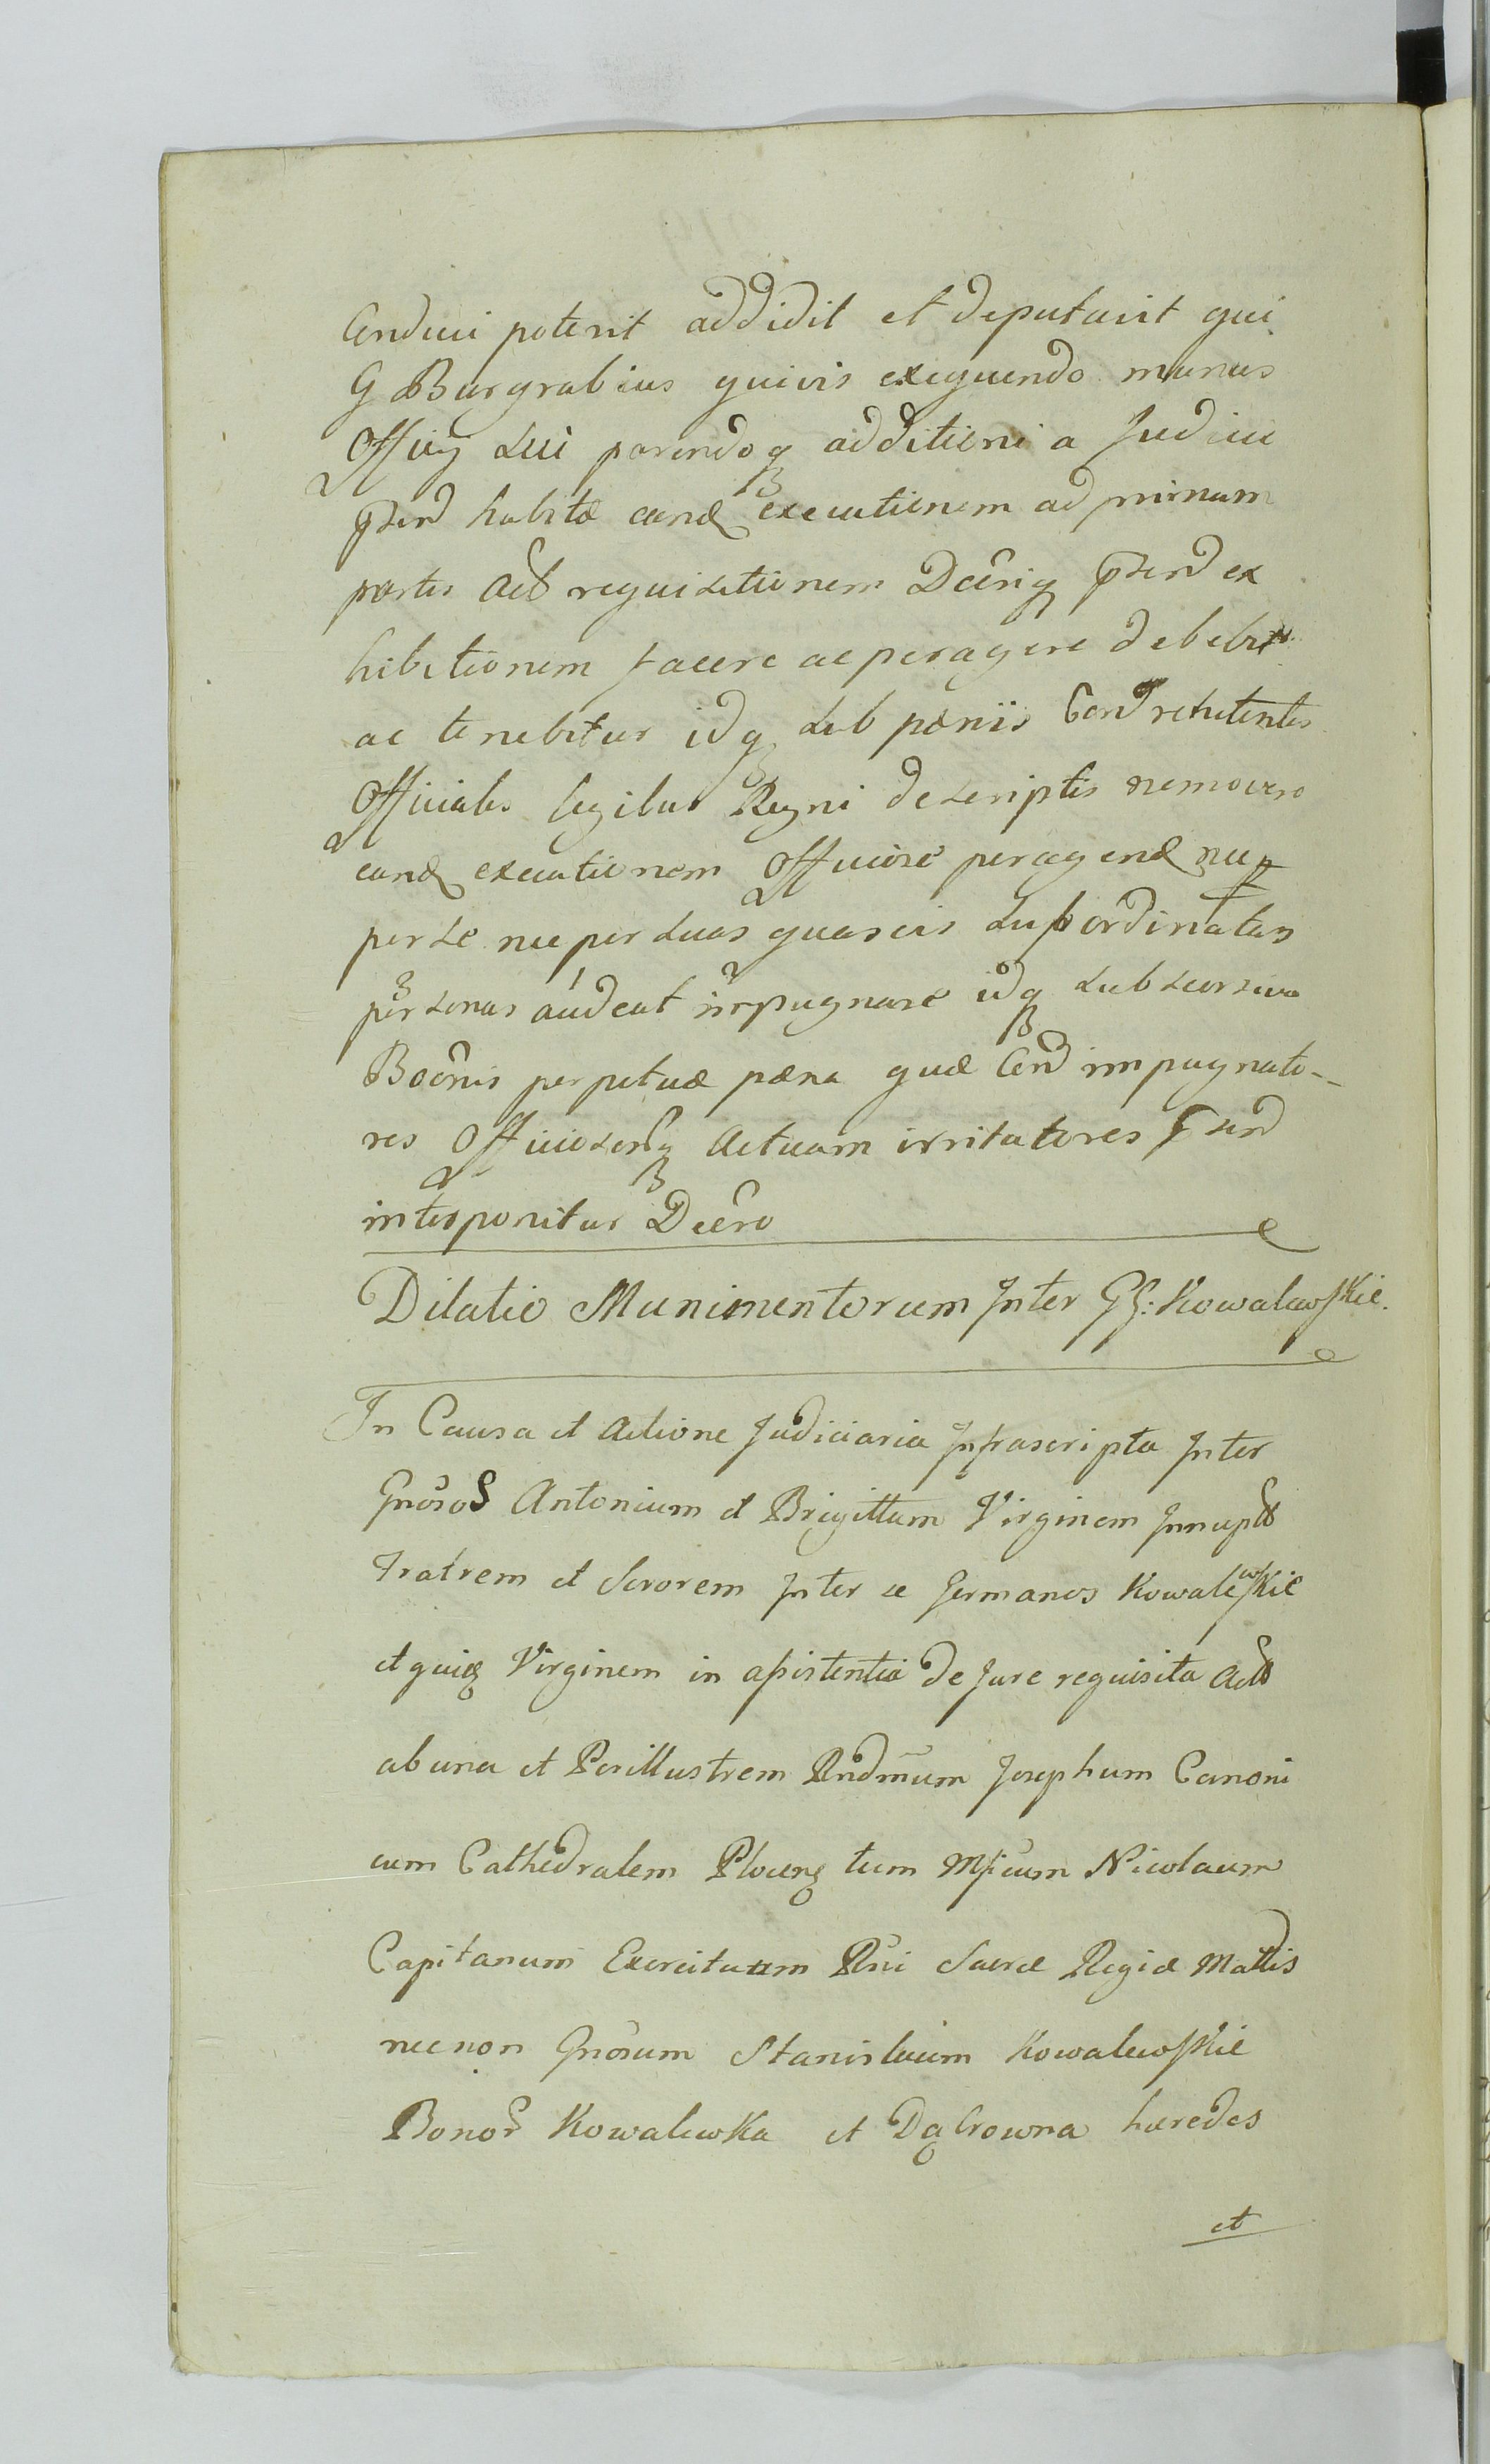 Conduci poterit addidit et deputavit qui
G Burgrabius quivis exequendo munus
Officÿ sui parendoq additioni a Judicio
pñtend habitæ eand executionem ad primam
partis Act requisitionem Decrig pñtend ex
hibitionem facere ac peragere debebit
ac tenebitur idq sub pænis Cont renitentes
Officiales legibus Regni descriptis nemo vero
eand executionem Officiose peragend neq
per se nec per suas quasvis subordinatas
personas audeat impugnare idq sub successiva
Boẽnis perpetuæ pæna quæ Cont impugnato-
res Officiosorq Actuum irritatores pñtend
interponitur Decro
Dilatio Munimentorum Inter GG: Kowalewskie.
In Causa et Actione Judiciaria Infrascripta Inter
Gnosos Antonium et Brigittam Virginem Innupt
Fratrem et Sororem Inter se Germanos Kowalewskie
et quid Virginem in assistentia de Jure requisita Act
ab una et Perillustrem Rndmum Josephum Canoni
cum Cathedralem Plocens tum Mficum Nicolaum
Capitanum Exercituum Rni Sacræ Regiæ Mattis
necnon Gnosum Stanislaum Kowalewskie
Bonor Kowalewka et Dąbrowna hæredes
et